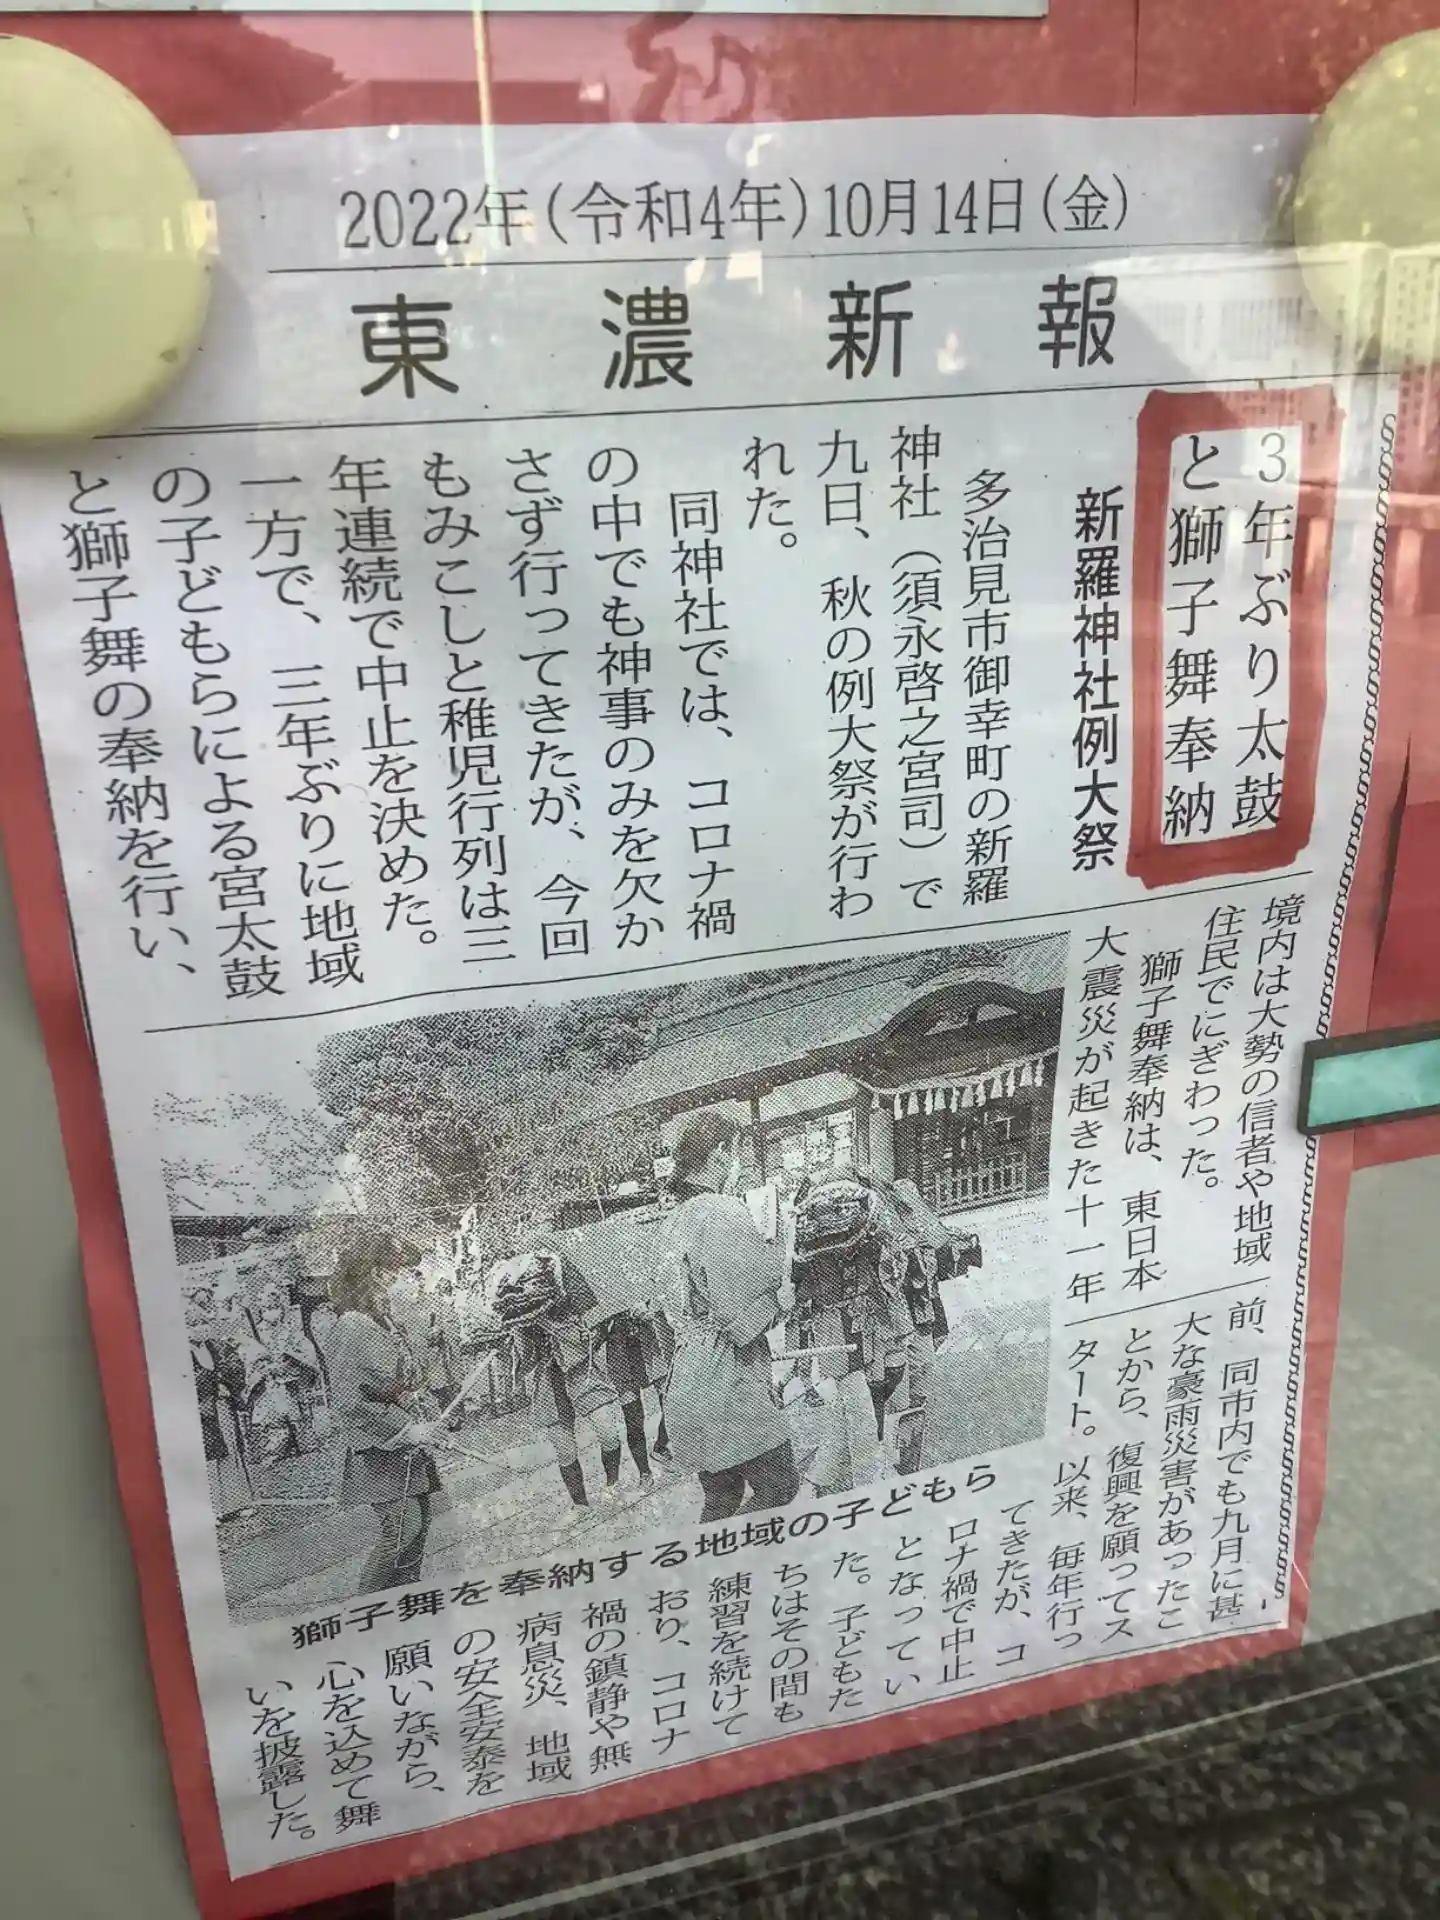 2022年(令和4年)10月14日(金)
東濃新報
3年ぶり太鼓
と獅子舞奉納
新羅神社例大祭
多治見市御幸町の新羅
神社（須永啓之宮司）で
九日、秋の例大祭が行わ
れた。
同神社では、コロナ禍
の中でも神事のみを欠か
さず行ってきたが、今回
もみこしと稚児行列は三
年連続で中止を決めた。
一方で、三年ぶりに地域
の子どもらによる宮太鼓
と獅子舞の奉納を行い、
境内は大勢の信者や地域
住民でにぎわった。
獅子舞奉納は、東日本
大震災が起きた十一年
前、同市内でも九月に甚
大な豪雨災害があったこ
とから、復興を願ってス
タート。以来、毎年行っ
てきたが、コ
ロナ禍で中止
となってい
た。子どもた
ちはその間も
練習を続けて
おり、コロナ
禍の鎮静や無
病息災、地域
の安全安泰を
願いながら、
心を込めて舞
いを披露した。
獅子舞を奉納する地域の子どもら